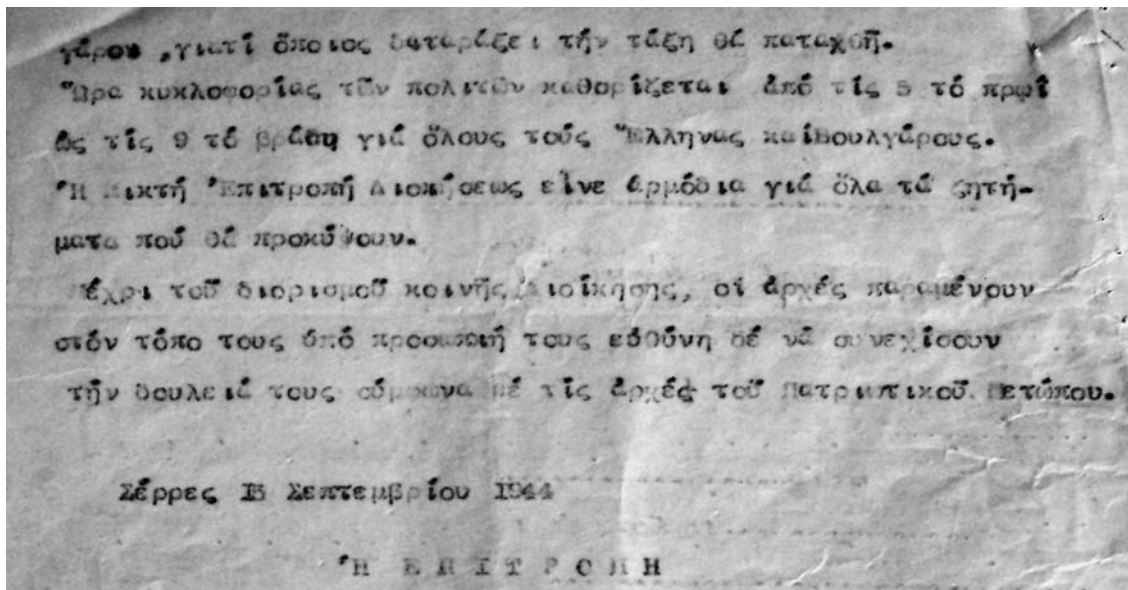 γάρου ,γιατί ὅποιος διαταράξει τήν τάξη θά παταχθῆ.
Ὥρα κυκλοφορίας τῶν πολιτῶν καθορίζεται ἀπό τίς 5 τό πρωΐ
ὡς τίς 9 τό βράδυ γιά ὅλους τούς Ἕλληνας καίΒουλγάρους.
Ἡ Μικτή Ἐπιτροπή Διοικήσεως εἶνε ἁρμόδια γιά ὅλα τά ζητή-
ματα πού θά προκύψουν.
Μέχρι τοῦ διορισμοῦ κοινῆς Διοίκησης, οἱ ἀρχές παραμένουν
στόν τόπο τους ὑπό προσωπική τους εὐθύνη δέ νά συνεχίσουν
τήν δουλειά τους σύμφωνα μέ τίς ἀρχές τοῦ Πατριωτικοῦ Μετώπου.
Σέρρες 15 Σεπτεμβρίου 1944
Ἡ ΕΠΙΤΡΟΠΗ